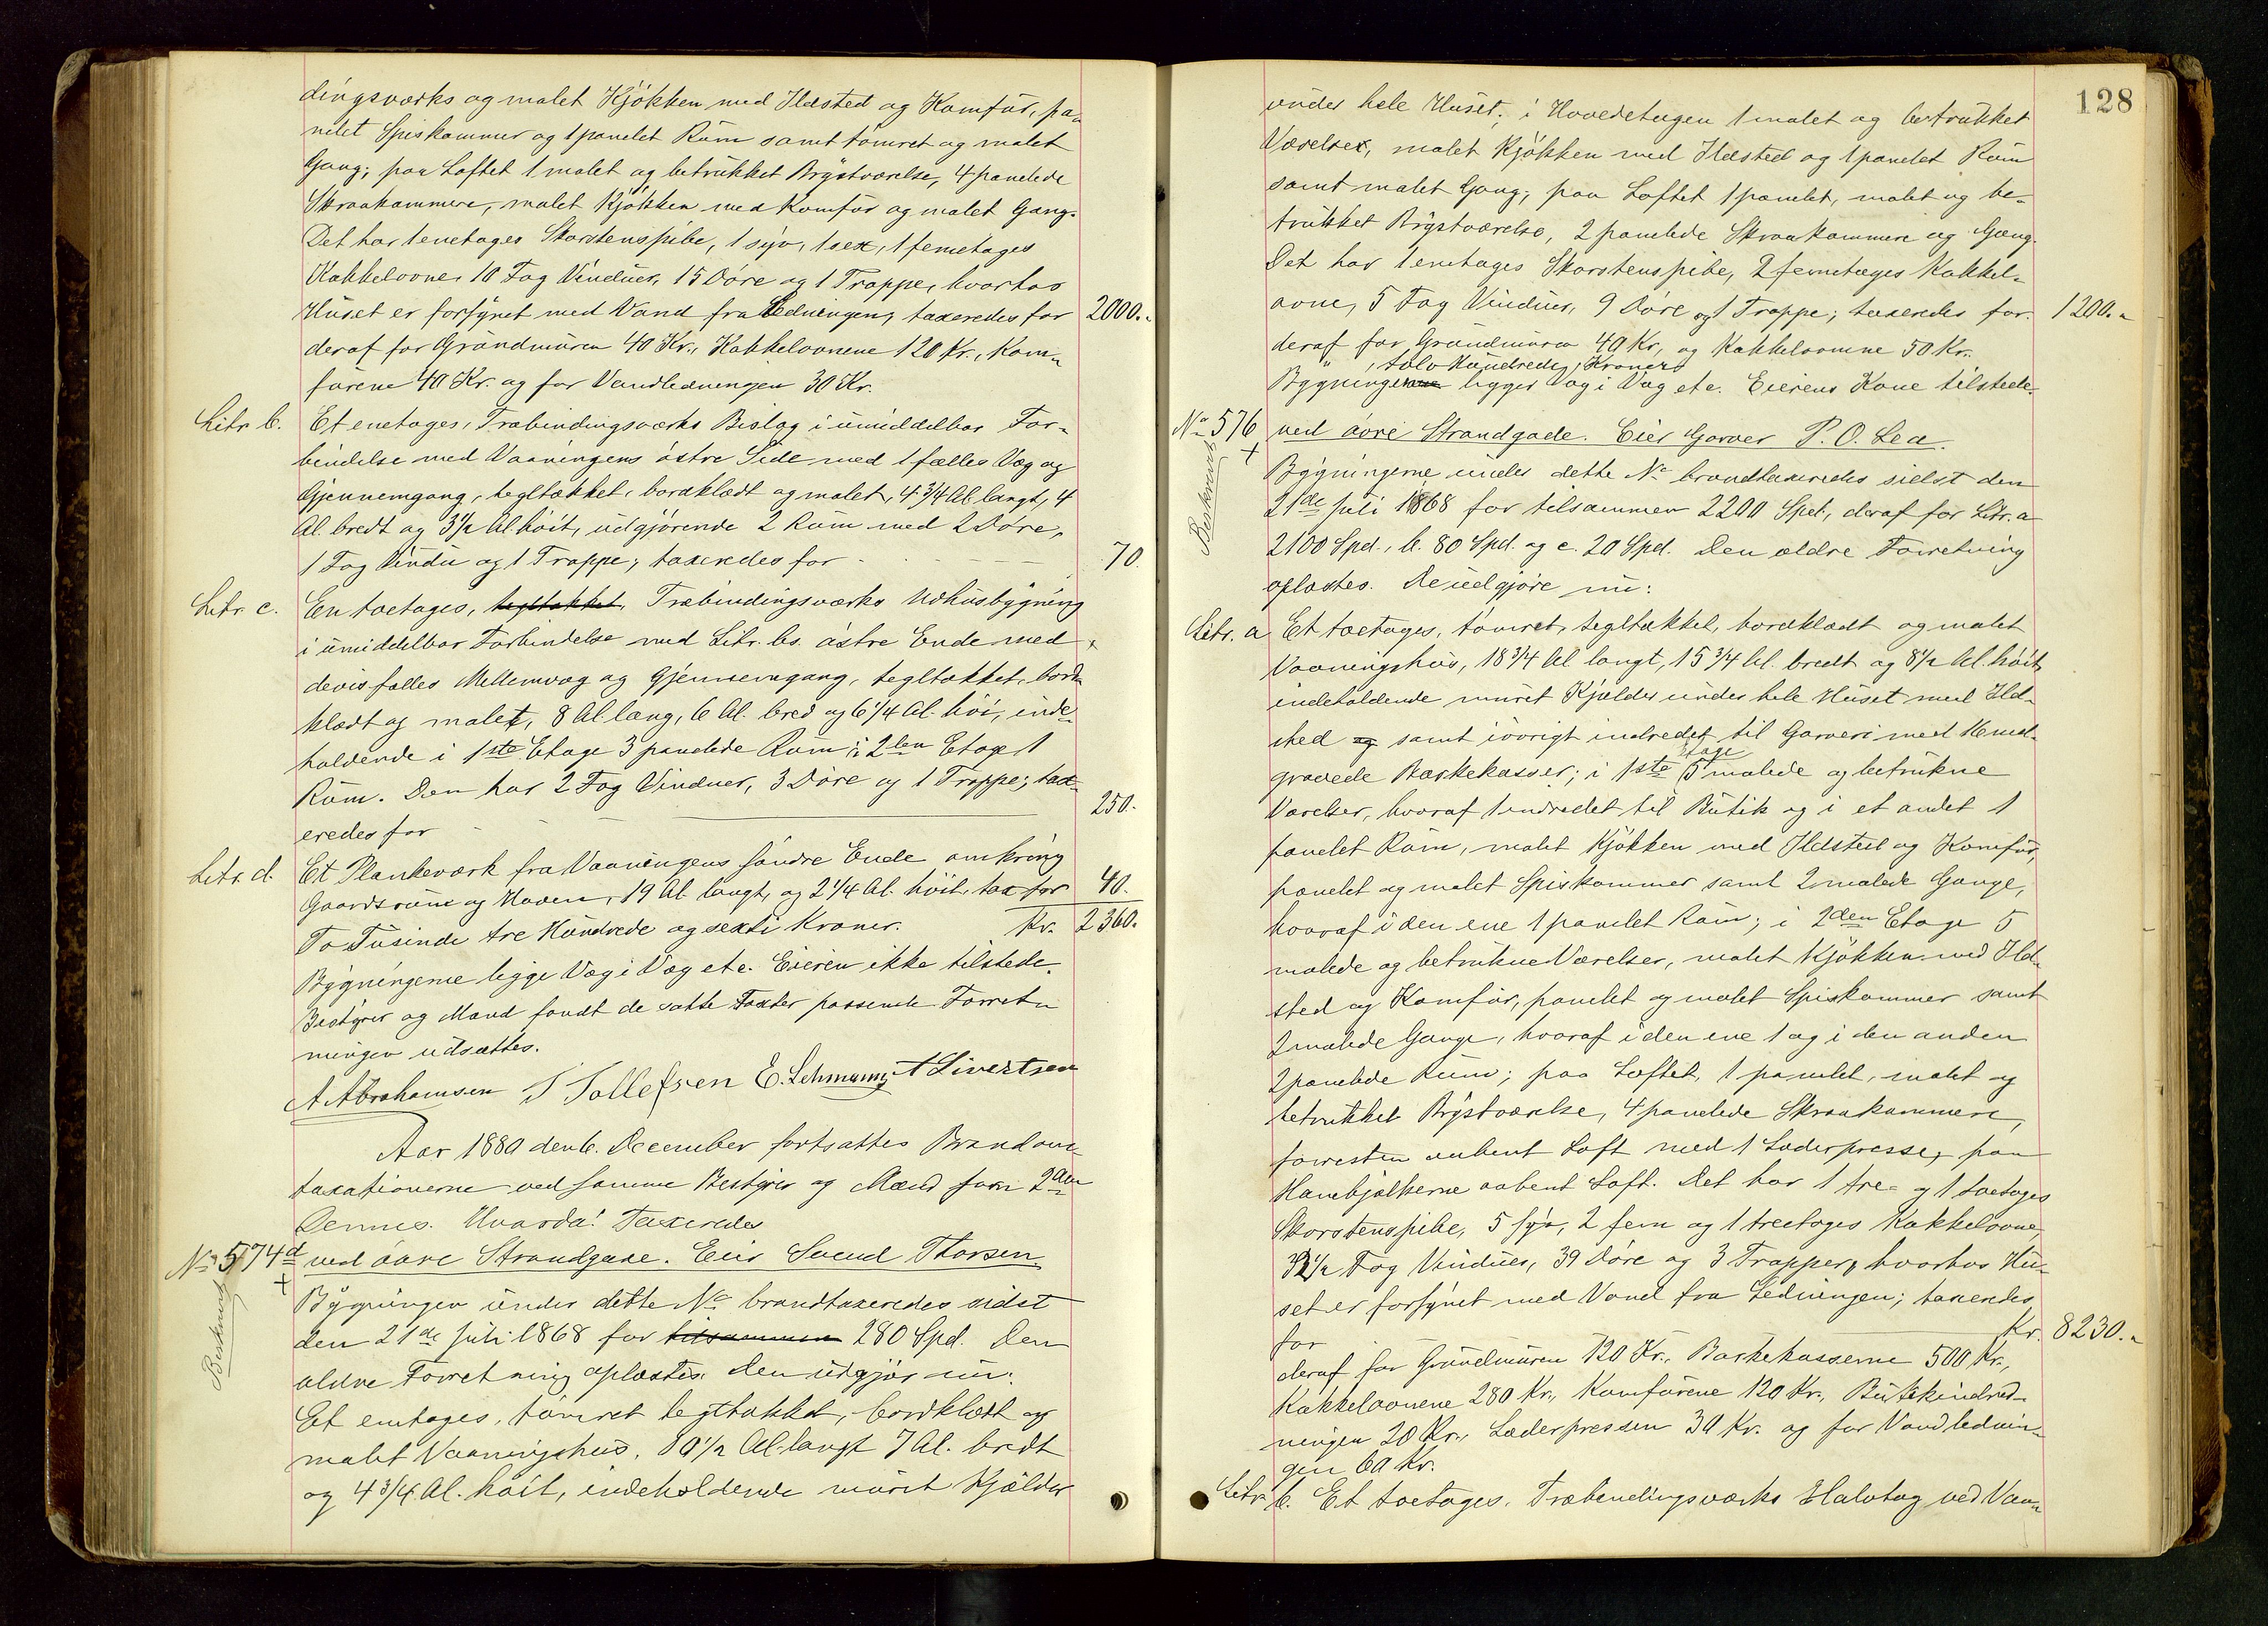 dingsværks og malet Kjökken med Ildsted og Komfur, pa-
nelet Spiskammer og 1 panelet Rum samt tömret og malet
Gang; paa Loftet 1 malet og betrukket Brystværelse, 4 panelede
Skraakammere, malet Kjökken med Komfur og malet Gang.
Det har 1 enetages Skorstenspibe, 1 syv, 1 sex, 1 femetages
Kakkelovne, 10 Fag Vinduer, 15 Döre og 1 Trappe, hvorhos
Huset er forsynet med Vand fra Ledningen, taxeredes for 2000.-
deraf for Grundmuren 40 Kr., Kakkelovnene 120 Kr., Kom-
furene 40 Kr. og for Vandledningen 30 Kr.
Litr. b. Et enetages, Træbindingsværks Bislag i umiddelbar For-
bindelse med Vaaningens östre Side med 1 fælles Væg og
Gjennemgang, tegltækket, bordklædt og malet, 4 3/4 Al. langt, 4
Al. bredt og 3 1/2 Al. höit, udgjörende 2 Rum med 2 Döre,
1 Fag Vindu og 1 Trappe; taxeredes for 70.
Litr. c. En toetages, tegltækket, Træbindingsværks Udhusbygning
i umiddelbar Forbindelse med Litr. bs. östre Ende med
devis fælles Mellemvæg og Gjennemgang, tegltækket, bord-
klædt og malet, 8 Al. lang, 6 Al. bred og 6 1/4 Al. höi, inde-
holdende i 1ste Etage 3 panelede Rum i 2den Etage 1
Rum. Den har 2 Fag Vinduer, 3 Döre og 1 Trappe; tax-
eredes for 250.
Litr. d. Et Plankeværk fra Vaaningens söndre Ende omkring
Gaardsrum og Haven, 19 Al. langt, og 2 1/4 Al. höit, tax for 40.
To Tusinde tre Hundrede og sexti Kroner. Kr. 2360.
Bygningerne ligge Væg i Væg etc. Eieren ikke tilstede.
Bestyrer og Mænd fandt de satte Taxter passende. Forret-
ningen udsættes.
A Abrahamsen T Tollefsen E. Lehmann A Sivertsen
Aar 1880 den 6. December fortsattes Brandom-
taxationerne ved samme Bestyrer og Mænd som 2den
Dennes. Hvorda! Taxeredes
No 574d ved övre Strandgade. Eier Svend Thorsen
Bygningen under dette No brandtaxeredes sidst
den 21de Juli 1868 for tilsammen 280 Spd. Den
ældre Forretning oplæstes. Den udgjör nu:
Et enetages, tömret tegltækket, bordklædt og
malet Vaaningshus, 10 1/2 Al. langt 7 Al. bredt
og 4 3/4 Al. höit, indeholdende muret Kjælder
128
under hele Huset; i Hovedetagen 1 malet og betrukket
Værelse, malet Kjökken med Ildsted og 1 panelet Rum
samt malet Gang; paa Loftet 1 panelet, malet og be-
trukket Brystværelse, 2 panelede Skraakammere og Gang.
Det har 1 enetages Skorstenspibe, 2 femetages Kakkel-
ovne, 5 Fag Vinduer, 9 Döre og 1 Trappe; taxeredes for 1200.-
deraf for Grundmuren 40 Kr, og Kakkelovnene 50 Kr.
" , tolv Hundrede, Kroner
Bygningen ligger Væg i Væg etc. Eierens Kone tilstede.
No 576 ved övre Strandgade. Eier Garver P. O. Lea.
Bygningerne under dette No brandtaxeredes sidst den
21de Juli 1868 for tilsammen 2200 Spd., deraf for Litr. a
2100 Spd., b. 80 Spd. og c. 20 Spd. Den ældre Forretning
oplæstes. De udgjöre nu:
Litr. a Et toetages, tömret, tegltækket, bordklædt og malet
Vaaningshus, 18 3/4 Al. langt, 15 3/4 Al. bredt og 8 1/2 Al. höit,
indeholdende muret Kjælder under hele Huset med Ild-
sted og samt iövrigt indredet til Garveri med 4 ned-
gravede Barkekasser; i 1ste Etage 5 malede og betrukne
Værelser, hvoraf 1 indredet til Butik og i et andet 1
panelet Rum, malet Kjökken med Ildsted og Komfur,
panelet og malet Spiskammer samt 2 malede Gange,
hvoraf i den ene 1 panelet Rum; i 2den Etage 5
malede og betrukne Værelser, malet Kjökken med Ild-
sted og Komfur, panelet og malet Spiskammer samt
2 malede Gange, hvoraf i den ene 1 og i den anden
2 panelede Rum; paa Loftet, 1 panelet, malet og
betrukket Brystværelse, 4 panelede Skraakammere,
forresten aabent Loft med 1 Læderpresse, paa
Hanebjælkerne aabent Loft. Det har 1 tre- og 1 toetages
Skorstenspibe, 5 syv, 2 fem og 1 treetages Kakkelovne,
1/2 Fag Vinduer, 39 Döre og 3 Trapper, hvorhos Hu-
set er forsynet med Vand fra Ledningen; taxeredes
for Kr. 8230.-
deraf for Grundmuren 120 Kr., Barkekasserne 500 Kr.,
Kakkelovnene 280 Kr., Komfurene 120 Kr., Butikindred-
ningen 20 Kr., Læderpressen 30 Kr. og for Vandlednin-
gen 60 Kr.
Litr. b. Et toetages, Træbindingsværks Halvtag ved Vaa-